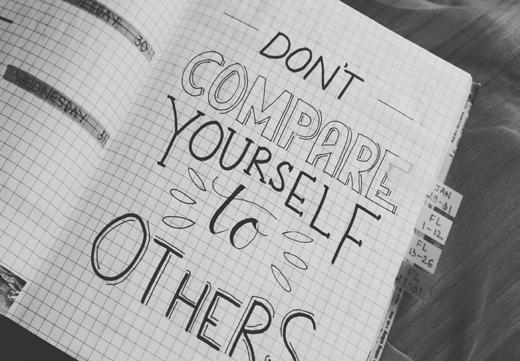 30
WEDNESDAY 31
DON'T
COMPARE
YOURSELF
to
OTHERS
JAN
FL
1-12
FL
13-26